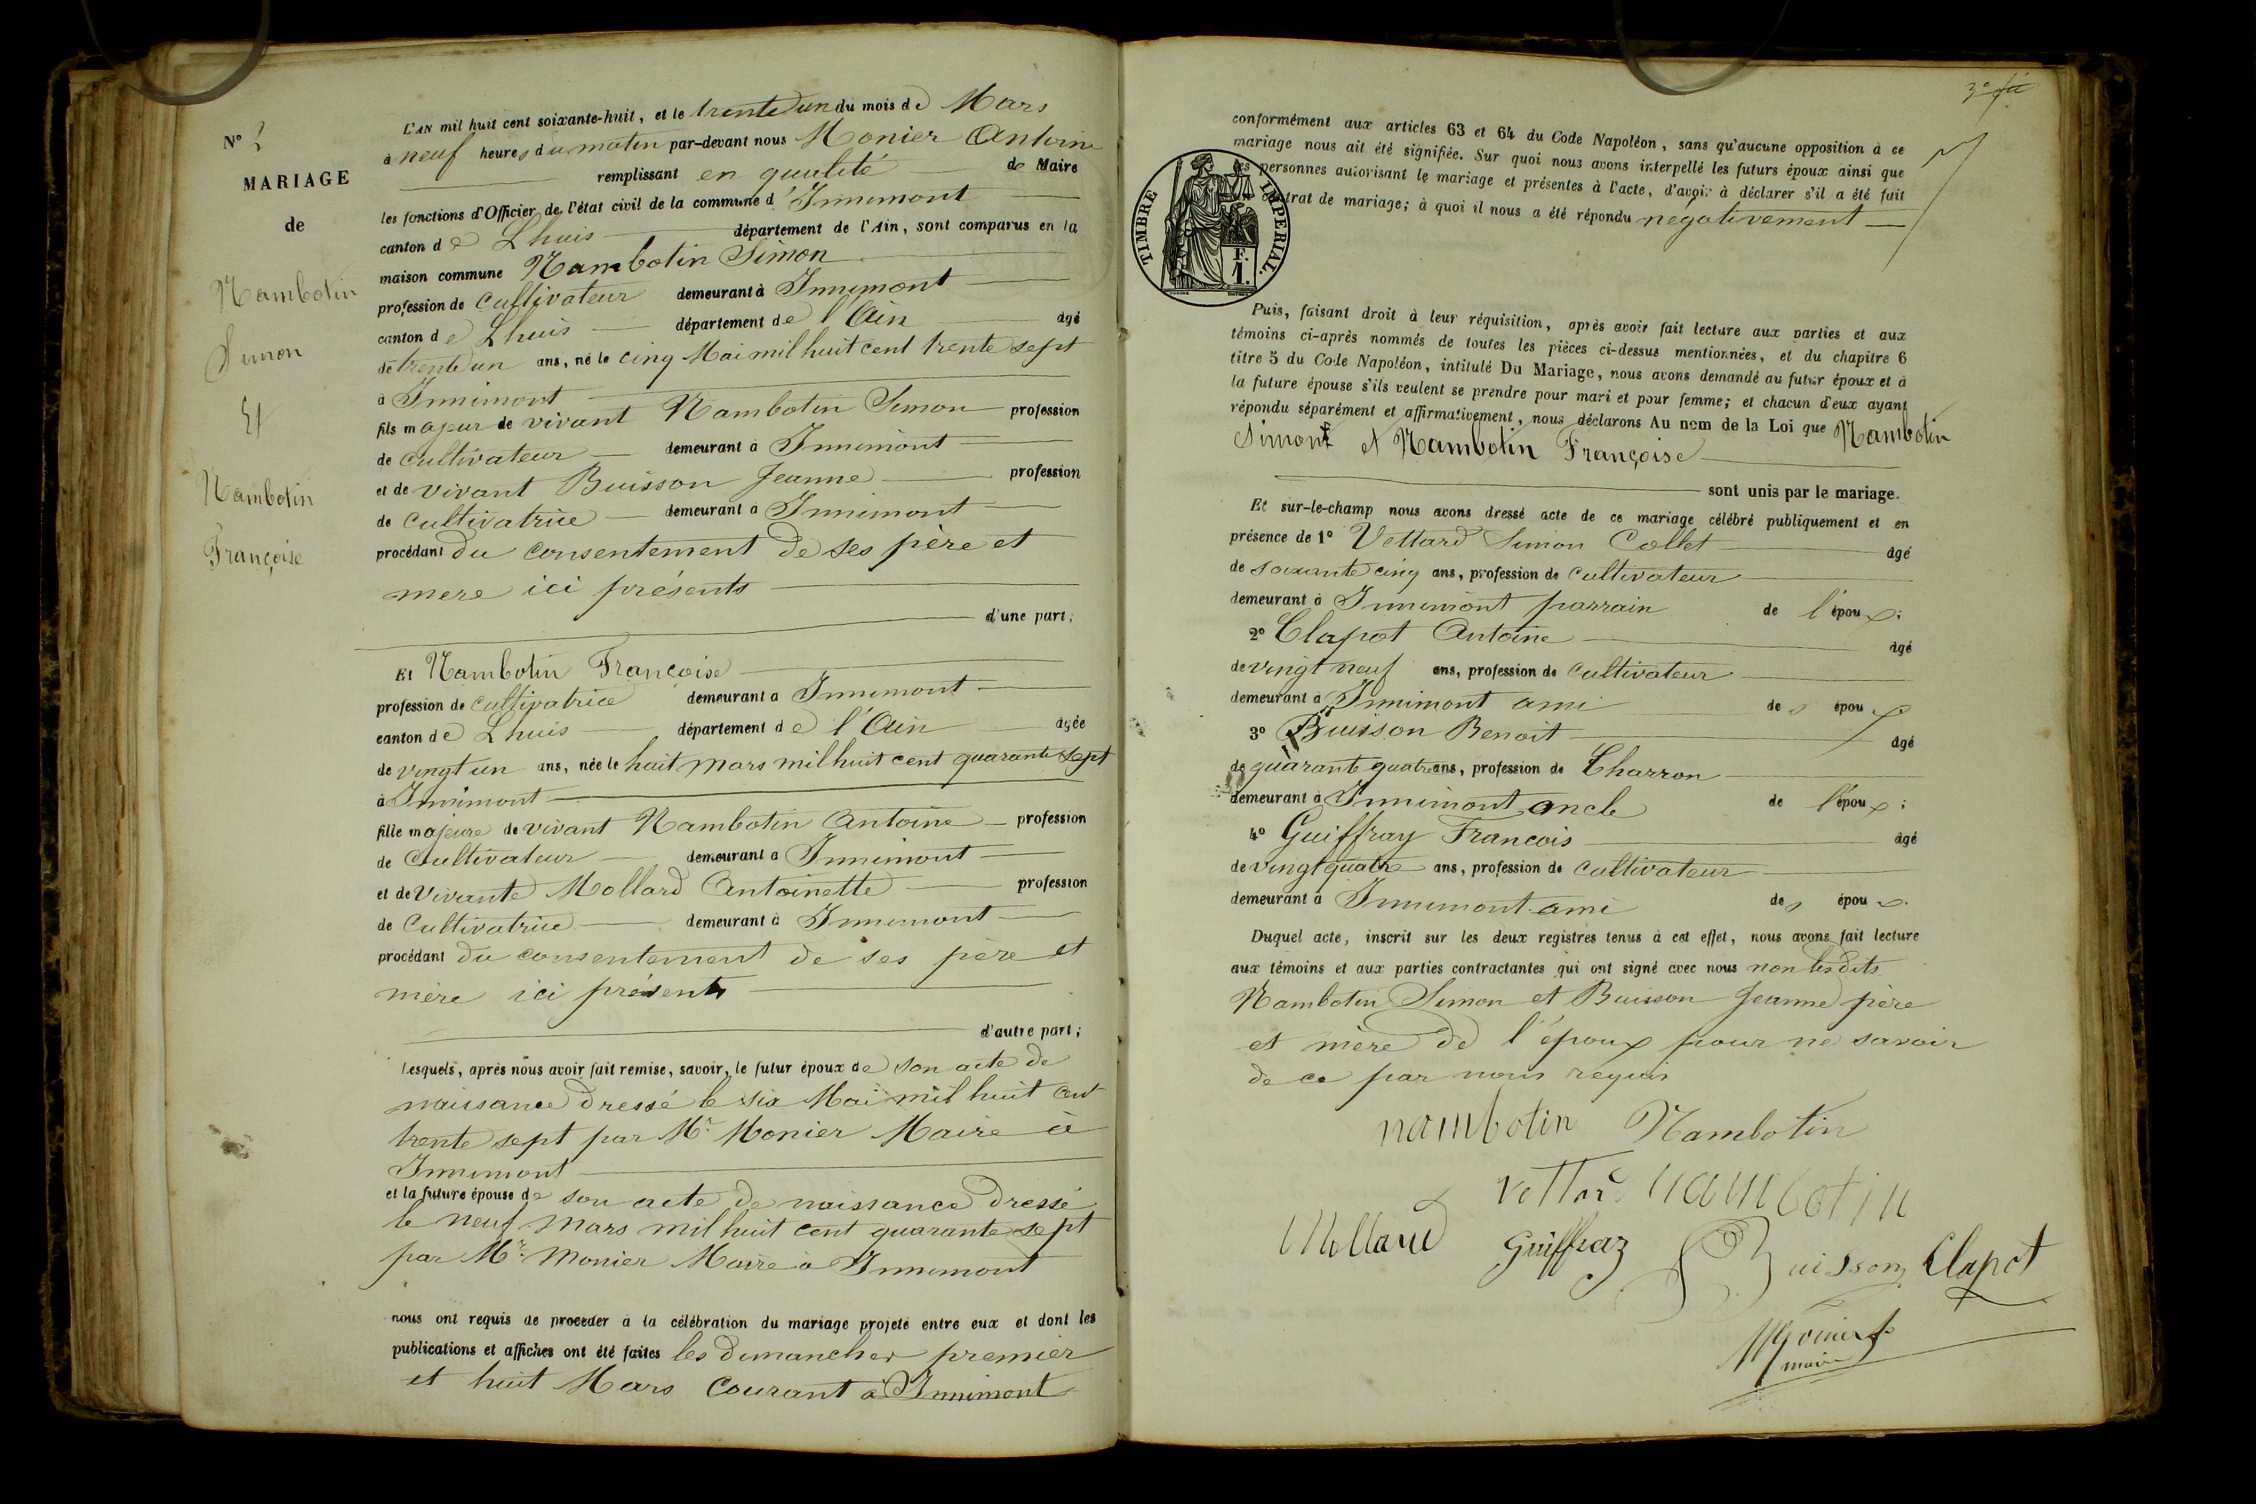 N° 2
MARIAGE
de
Nambotin
Simon
Et
Nambotin
Françoise
L'AN mil huit cent soixante-huit, et le trente un du mois de Mars
à neuf heures du matin par-devant nous Monier Antoine
remplissant en qualité de Maire
les fonctions d'Officier de l'état civil de la commune d'Innimont
canton de Lhuis département de l'Ain, sont comparus en la
maison commune Nambotin Simon
profession de cultivateur demeurant à Innimont
canton de Lhuis département de l'Ain âgé
de trente un ans, né le cinq Mai mil huit cent trente sept
à Innimont
fils majeur de vivant Nambotin Simon profession
de cultivateur demeurant à Innimont
et de vivant Buisson Jeanne profession
de cultivatrice demeurant à Innimont
procédant du consentement de ses père et
mere ici présents
d'une part;
Et Nambotin Françoise
profession de cultivatrice demeurant à Innimont
canton de Lhuis département de l'Ain âgée
de vingt un ans, née le huit mars mil huit cent quarante sept
à Innimont
fille majeure de vivant Nambotin Antoine profession
de Cultivateur demeurant à Innimont
et de Vivante Mollard Antoinette profession
de Cultivatrice demeurant à Innimont
procédant du consentement de ses père et
mère ici présents
d'autre part;
Lesquels, après nous avoir fait remise, savoir, le futur époux de son acte de
naissance dressé le six Mai mil huit cent
trente sept par Mr Monier Maire à
Innimont
et la future épouse de son acte de naissance dressé
le neuf mars mil huit cent quarante sept
par Mr Monier Maire à Innimont
nous ont requis de procéder à la célébration du mariage projeté entre eux et dont les
publications et affiches ont été faites les dimanches premier
et huit Mars Courant à Innimont
3e
conformément aux articles 63 et 64 du Code Napoléon, sans qu'aucune opposition à ce
mariage nous ait été signifiée. Sur quoi nous avons interpellé les futurs époux ainsi que
les personnes autorisant le mariage et présentes à l'acte, d'avoir à déclarer s'il a été fait
contrat de mariage; à quoi il nous a été répondu négativement
TIMBRE IMPERIAL.
1 F.
Puis, faisant droit à leur réquisition, après avoir fait lecture aux parties et aux
témoins ci-après nommés de toutes les pièces ci-dessus mentionnées, et du chapitre 6
titre 5 du Code Napoléon, intitulé Du Mariage, nous avons demandé au futur époux et à
la future épouse s'ils veulent se prendre pour mari et pour femme; et chacun d'eux ayant
répondu séparément et affirmativement, nous déclarons Au nom de la Loi que Nambotin
Simon et Nambotin Françoise
sont unis par le mariage.
Et sur-le-champ nous avons dressé acte de ce mariage célébré publiquement et en
présence de 1° Vettard Simon Collet âgé
de soixante cinq ans, profession de cultivateur
demeurant à Innimont parrain de l'époux;
2° Clapot Antoine âgé
de vingt neuf ans, profession de cultivateur
demeurant à Innimont ami des époux
3° Buisson Benoit âgé
de quarante quatre ans, profession de Charron
demeurant à Innimont oncle de l'époux;
4° Guiffray Francois âgé
de vingt quatre ans, profession de cultivateur
demeurant à Innimont ami des époux.
Duquel acte, inscrit sur les deux registres tenus à cet effet, nous avons fait lecture
aux témoins et aux parties contractantes qui ont signé avec nous non lesdits
Nambotin Simon et Buisson Jeanne père
et mère de l'époux pour ne savoir
de ce par nous requis
nambotin Nambotin
vettar nambotin
Mollard Guiffraz Buisson Clapot
Monier
maire